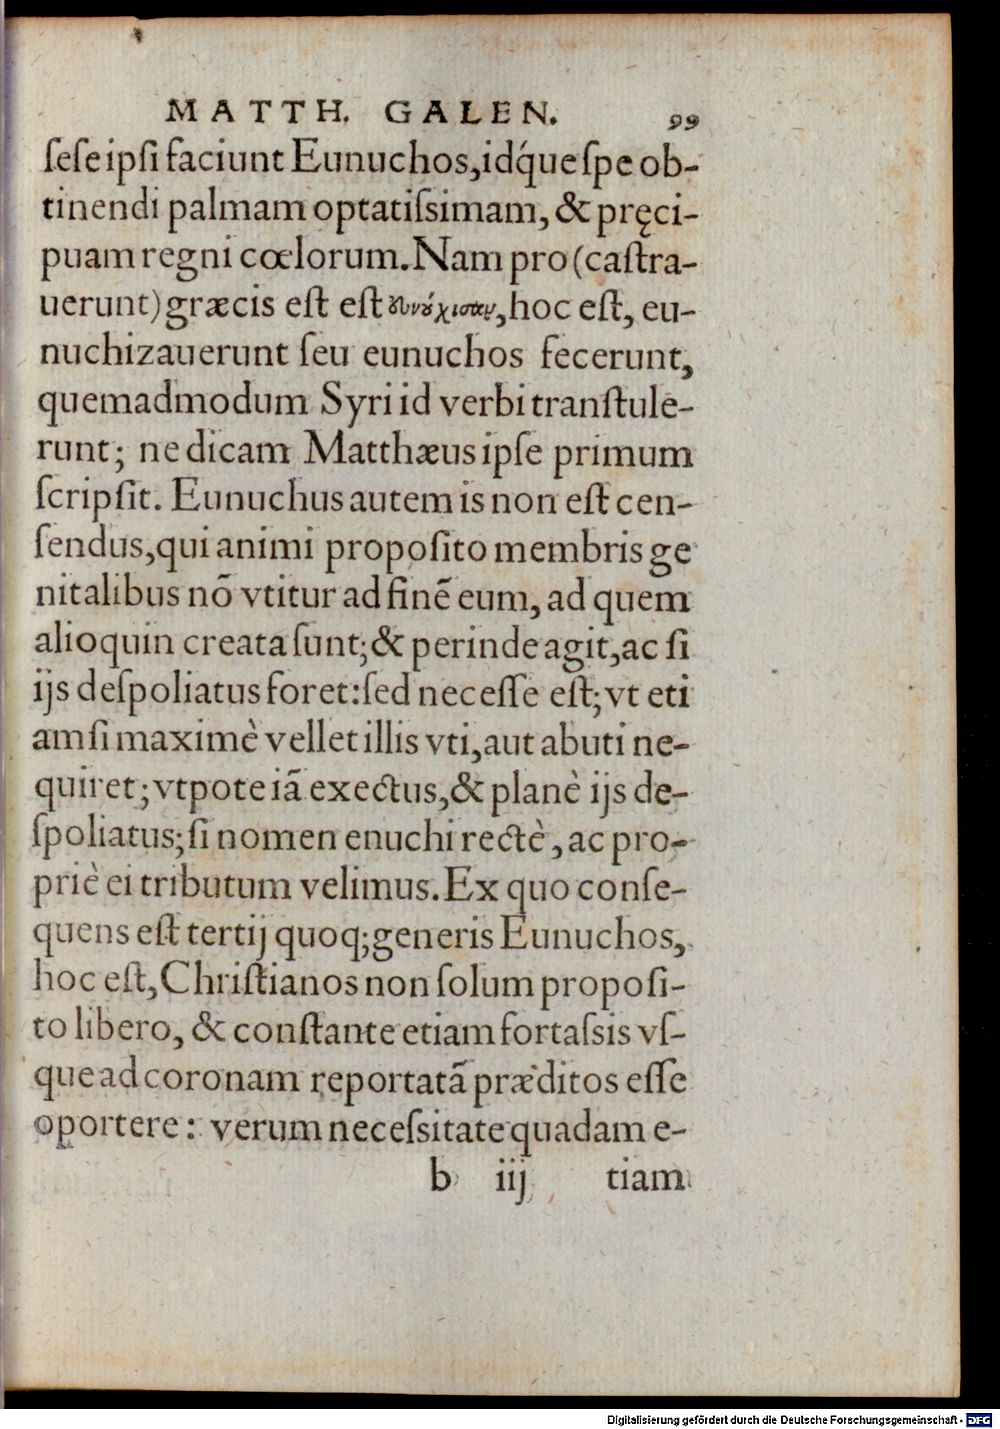 MATTH. GALEN. 99
ſeſe ipſi faciunt Eunuchos, idq́ue ſpe ob-
tinendi palmam optatiſsimam, & pręci-
puam regni cœlorum. Nam pro (caſtra-
uerunt) græcis eſt eſt , hoc eſt, eu-
nuchizauerunt ſeu eunuchos fecerunt,
quemadmodum Syri id verbi tranſtule-
runt; ne dicam Matthæus ipſe primum
ſcripſit. Eunuchus autem is non eſt cen-
ſendus, qui animi propoſito membris ge
nitalibus nō vtitur ad finē eum, ad quem
alioquin creata ſunt; & perinde agit, ac ſi
ijs deſpoliatus foret: ſed neceſſe eſt; vt eti
am ſi maximè vellet illis vti, aut abuti ne-
quiret; vtpote iā exectus, & planè ijs de-
ſpoliatus; ſi nomen enuchi rectè, ac pro-
priè ei tributum velimus. Ex quo conſe-
quens eſt tertij quoq; generis Eunuchos,
hoc eſt, Chriſtianos non ſolum propoſi-
to libero, & conſtante etiam fortaſsis vſ-
que ad coronam reportatā præditos eſſe
oportere: verum neceſsitate quadam e-
b iij tiam
Digitalisierung gefördert durch die Deutsche Forschungsgemeinschaft - DFG